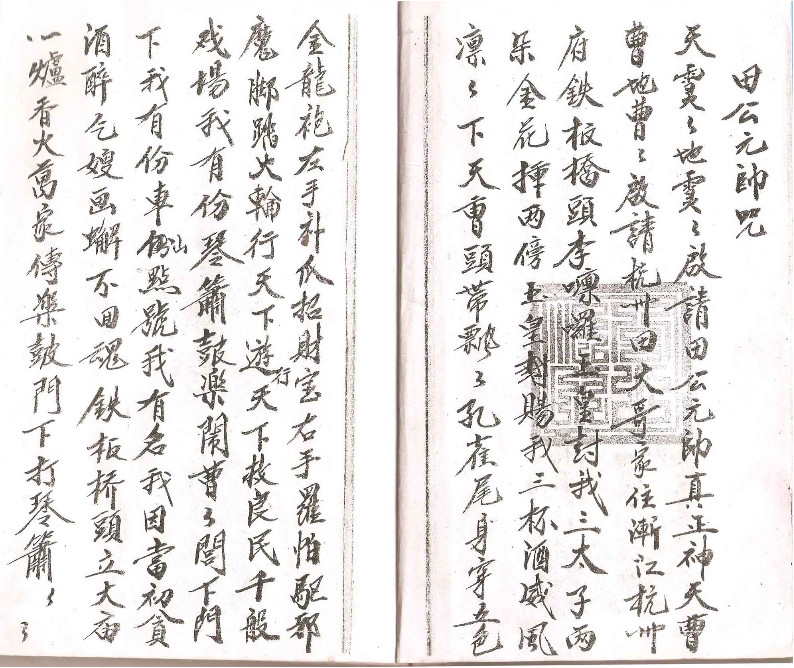 田公元帥咒
天靈々地靈々啟請田公元帥真正神天曹
曹地曹々啟請杭州田大哥家住漸江杭州
府鉄板橋頭李嚟囉玉皇封我三太子两
朵金花揷两傍玉皇敕賜我三杯酒威風
凛々下天曹頭带飄々孔雀尾身穿五色
金龍袍左手补瓜招財宝右手羅怕駆邪
魔脚踏火輪行天下遊行天下救良民千般
戏場我有份琴簫鼓楽閙曹々閭下門
下我有份車点號我有名我因當初貪
酒醉乞嫂画蠏不田魂鉄板桥頭立大庙
一爐香火萬家傳楽鼓門下打琴簫々